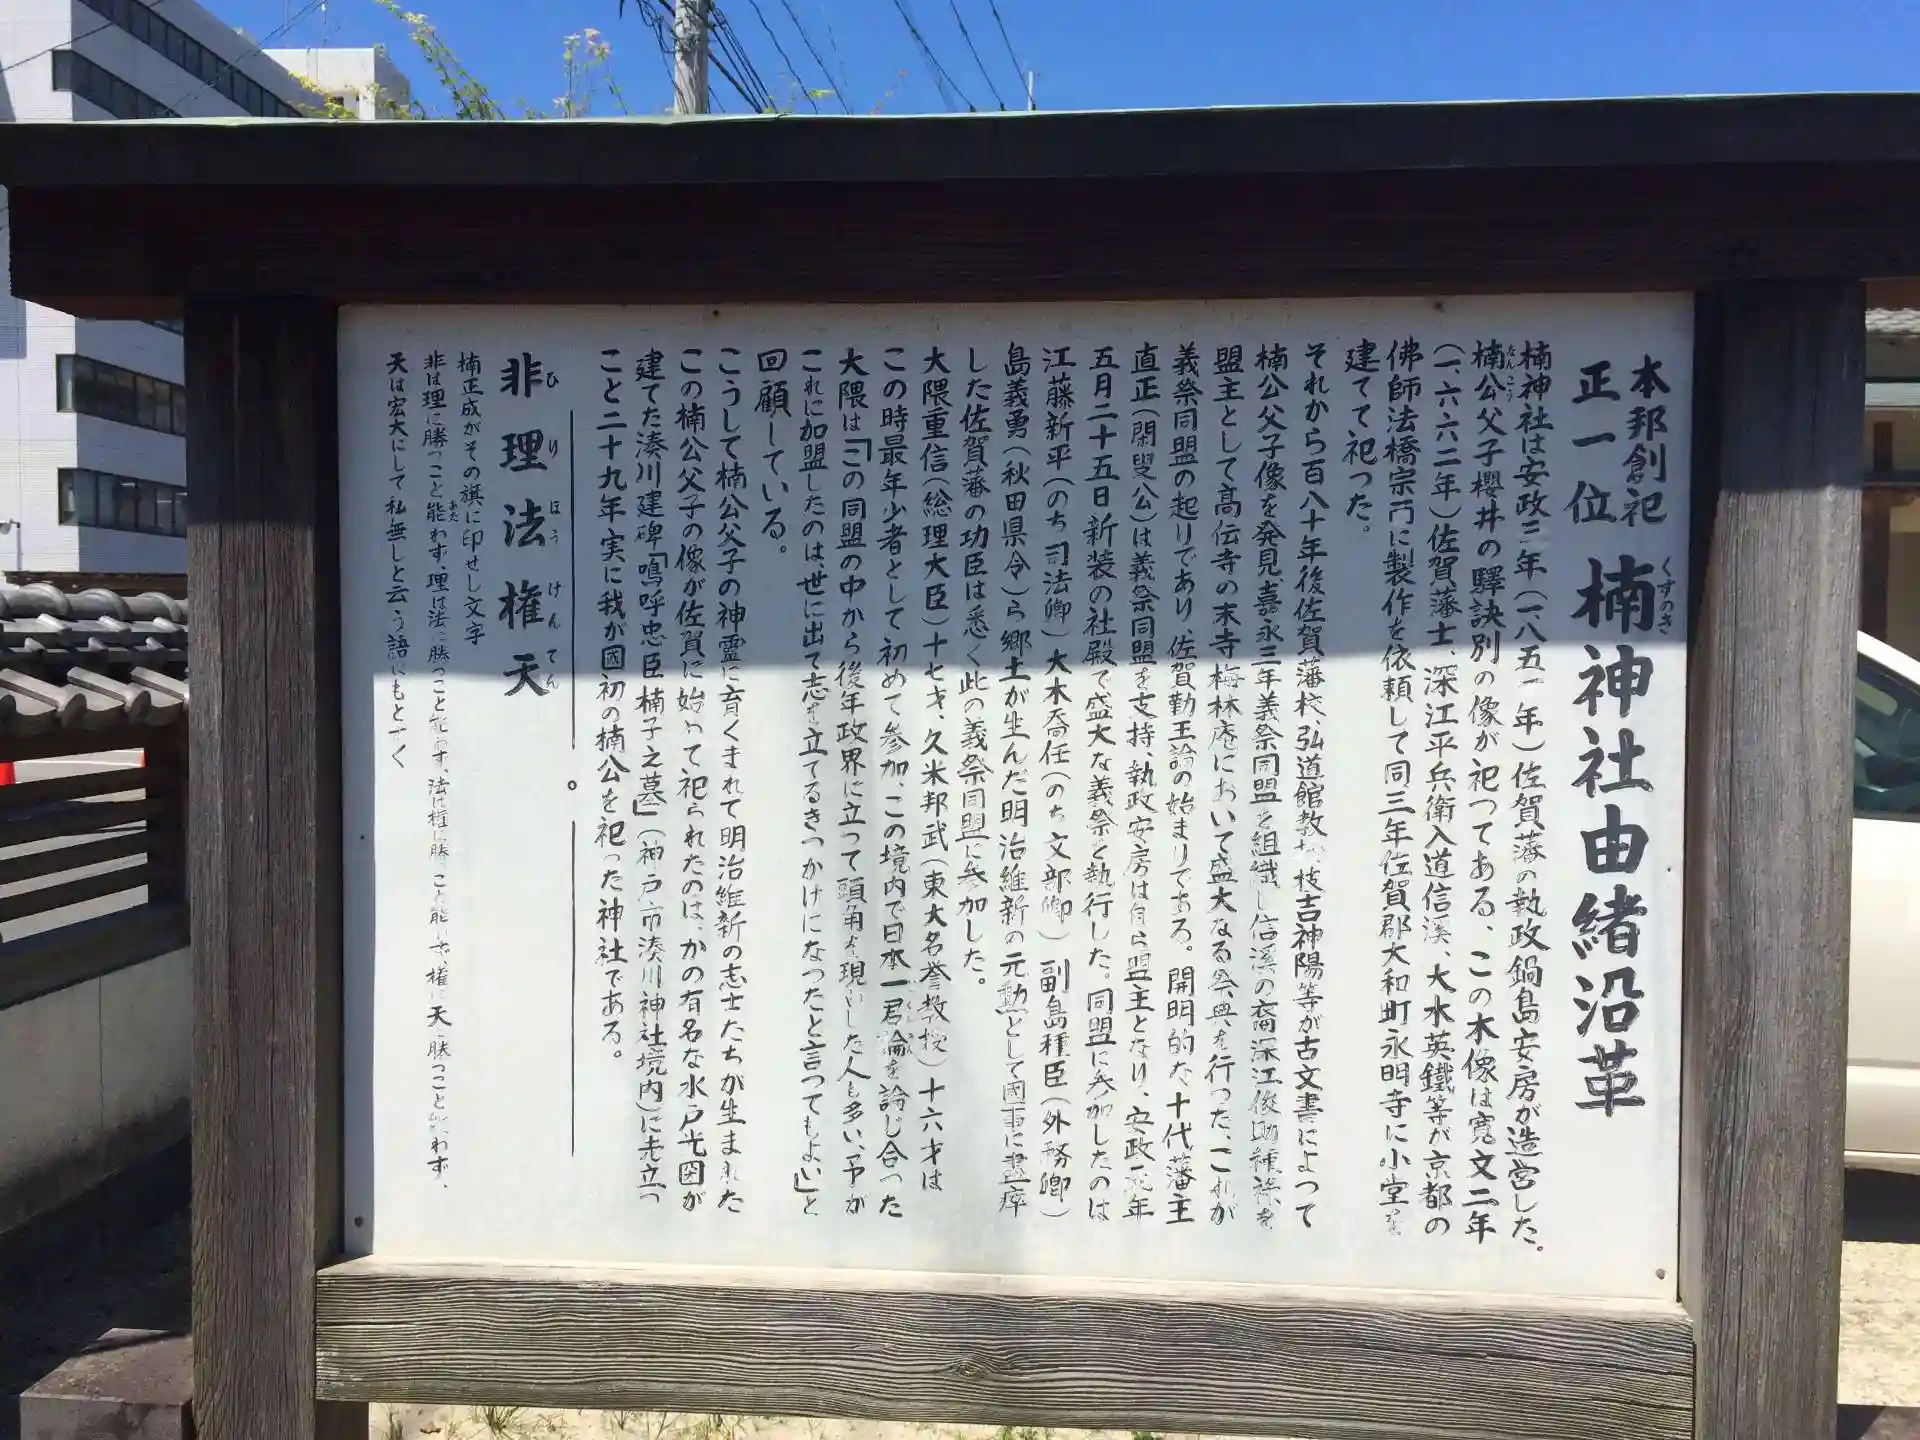 本邦創祀
正一位
楠神社由緒沿革
くすのき
楠神社は安政三年(一、八五一年)佐賀藩の執政鍋島安房が造営した。
楠公父子櫻井の驛訣別の像が祀つてある、この木像は寛文二年
なんこう
(一、六六二年)佐賀藩士、深江平兵衛入道信溪、大木英鐵等が京都の
佛師法橋宗而に製作を依頼して同三年佐賀郡大和町永明寺に小堂を
建てて祀った。
それから百八十年後佐賀藩校、弘道館教 枝吉神陽等が古文書によつて
楠公父子像を発見、嘉永三年義祭同盟を組織し信溪の裔深江俊助種禄を
盟主として高伝寺の末寺梅林庵において盛大なる祭典を行つた、これが
義祭同盟の起りであり、佐賀勤王論の始まりである。開明的な、十代藩主
直正(閑叟公)は義祭同盟を支持、執政安房は自ら盟主となり、安政 年
五月二十五日新装の社殿で盛大な義祭を執行した。同盟に参加したのは
江藤新平(のち司法卿)大木喬任(のち文部卿)副島種臣(外務卿)
島義勇(秋田県令)ら郷土が生んだ明治維新の元勲として国事に盡瘁
した佐賀藩の功臣は悉く此の義祭同盟に参加した。
大隈重信(総理大臣)十七才、久米邦武(東大名誉教授)十六才は
この時最年少者として初めて参加、この境内で日本一君論を論じ合った
大隈は「この同盟の中から後年政界に立つて頭角を現わした人も多い、予が
これに加盟したのは、世に出て志を立てるきつかけになつたと言つてもよい」と
回顧している。
こうして楠公父子の神霊に育くまれて明治維新の志士たちが生まれた
この楠公父子の像が佐賀に始めて祀られたのは、かの有名な水戸光圀が
建てた湊川建碑「鳴呼忠臣楠子之墓」(神戸市湊川神社境内)に先立つ
こと二十九年実に我が國初の楠公を祀った神社である。
非理法権天
ひりほうけんてん
楠正成がその旗に印せし文字
非は理に勝つこと能わず、理は法に勝つこと能わず、法は権に勝つこと能わず、権は天に勝つこと能わず、
あた
天は宏大にして私無しと云う語にもとづく